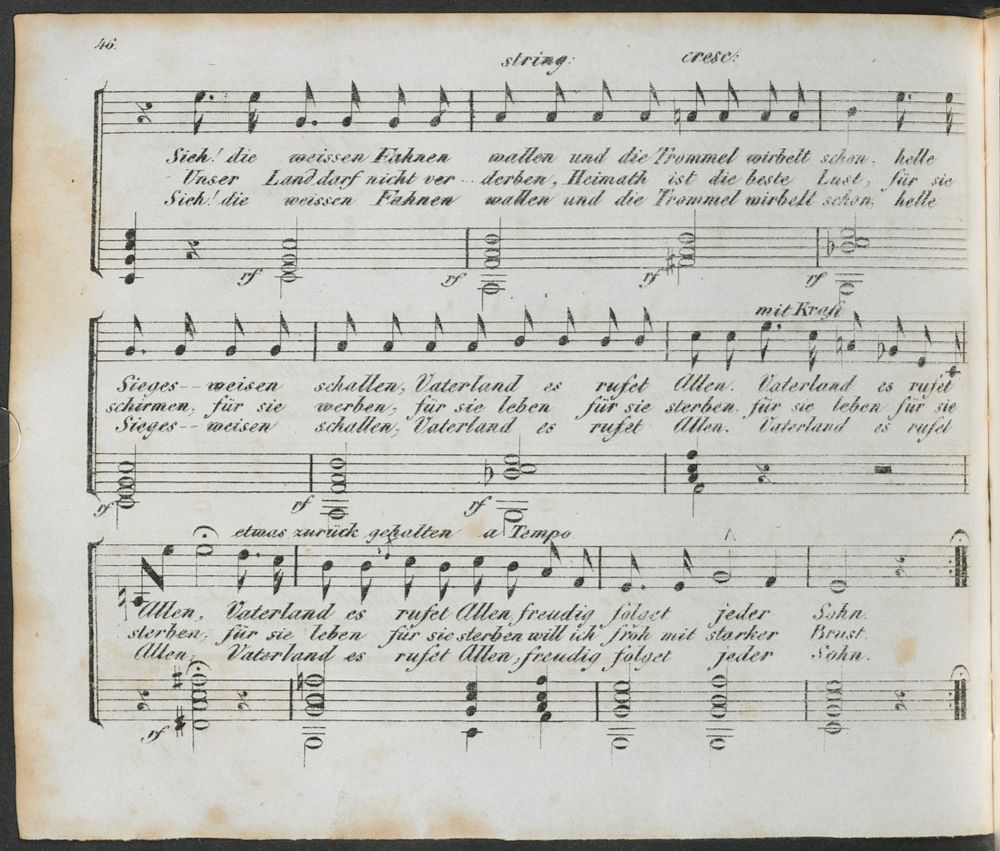 46.
string: cresc:
Sieh! die weissen Fahnen wallen und die Trommel wirbelt schon, helle
Unser Land darf nicht ver - derben, Heimath ist die beste Lust, für sie
Sieh! die weissen Fahnen wallen und die Trommel wirbelt schon, helle
rf rf rf rf
mit Kraft
Sieges - - weisen schallen, Vaterland es rufet Allen. Vaterland es rufet
schirmen, für sie werben, für sie leben für sie sterben, für sie leben für sie
Sieges - - weisen schallen, Vaterland es rufet Allen. Vaterland es rufet
rf rf rf
etwas zurück gehalten a Tempo
Allen, Vaterland es rufet Allen, freudig folget jeder Sohn.
sterben, für sie leben für sie sterben will ich froh mit starker Brust.
Allen, Vaterland es rufet Allen, freudig folget jeder Sohn.
rf